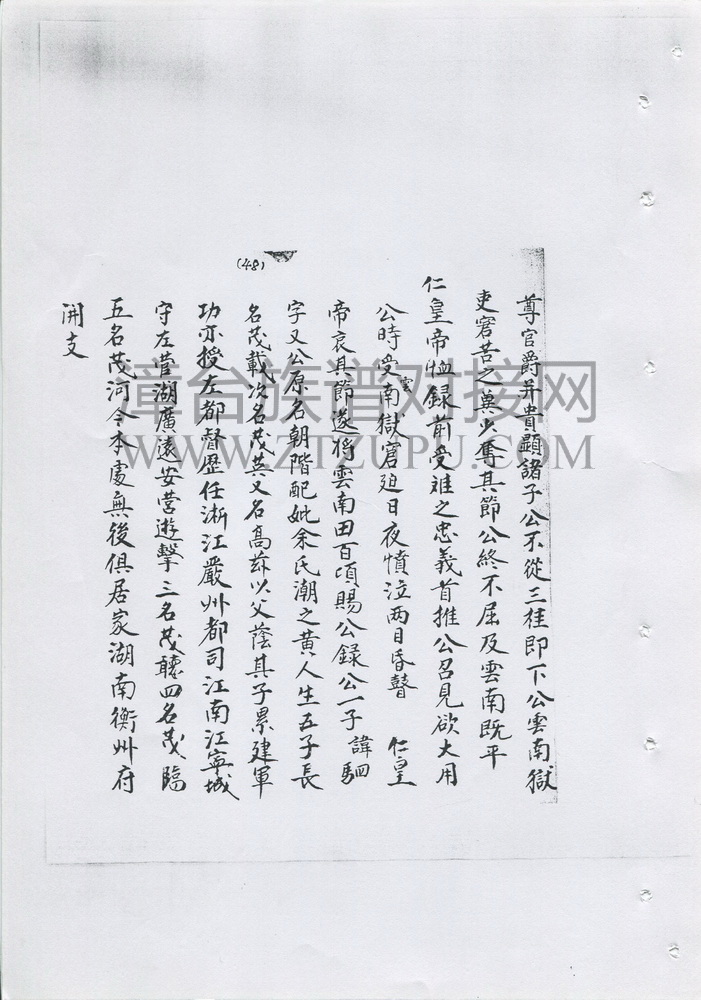 (48)
尊官爵并貴顯諸子公不從三桂即下公雲南獄
吏窘苦之冀少奪其節公終不屈及雲南既平
仁皇帝恤録前受難之忠義首推公召見欲大用
公時受雲南獄窘迫日夜憤泣两目昏瞽 仁皇
帝哀其節遂將雲南田百頃賜公録公一子諱駟
字又公原名朝階配妣余氏潮之黄人生五子長
名茂載次名茂英又名高茲以父蔭其子累建軍
功亦授左都督歷任浙江嚴州都司江南江寧城
守左營湖廣遠安營遊擊三名茂聽四名茂臨
五名茂河今本處無後俱居家湖南衡州府
開支
章台族谱对接网
WWW.ZTZUPU.COM